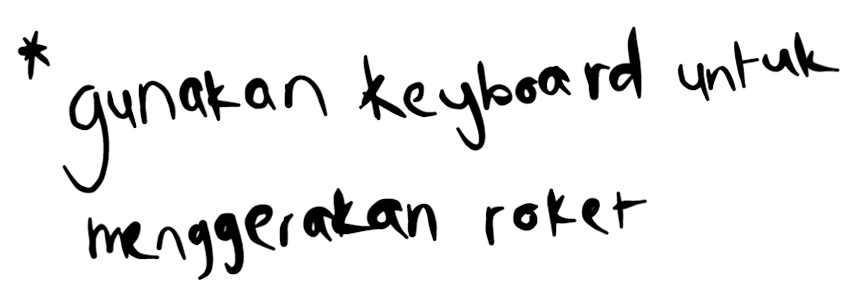 * gunakan keyboard untuk
menggerakan roket